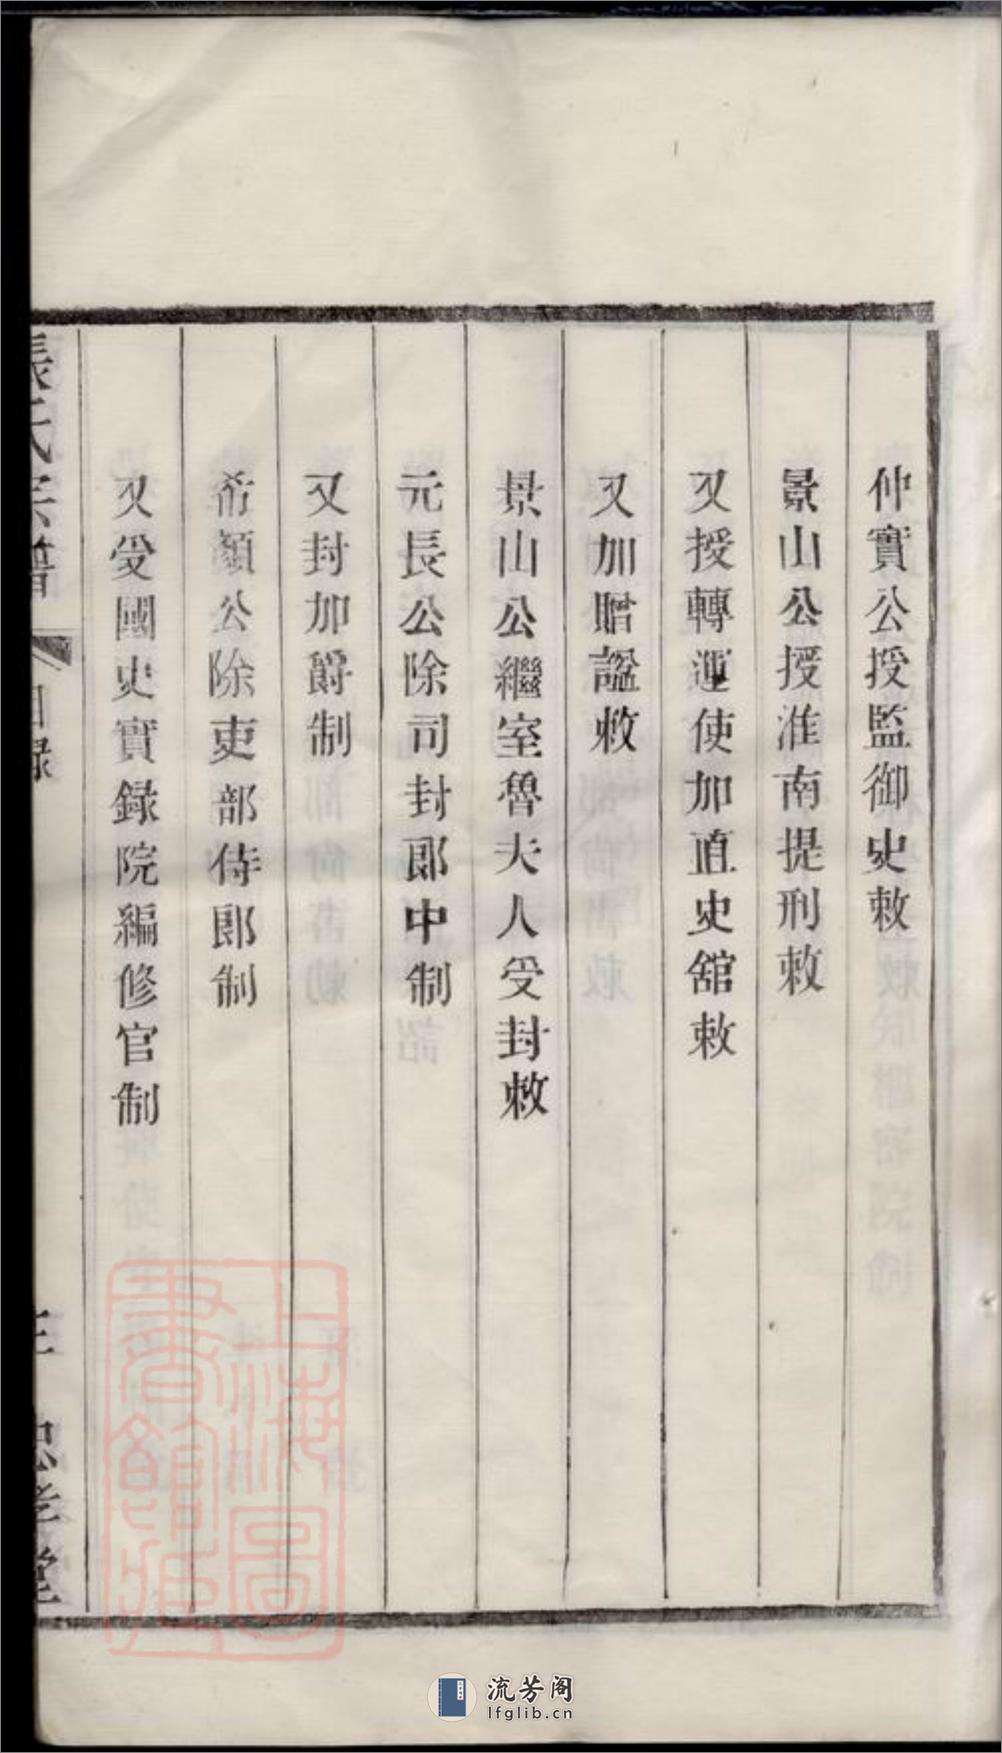 仲實公授監御史敕
景山公授淮南提刑敕
又授轉運使加直史舘敕
又加贈諡敕
景山公繼室魯夫人受封敕
元長公除司封郎中制
又封加爵制
希顏公除吏部侍郎制
又受國史實録院編修官制
張氏宗譜
目録
三
忠孝堂
上海圖書館藏
流芳阁
lfglib.cn